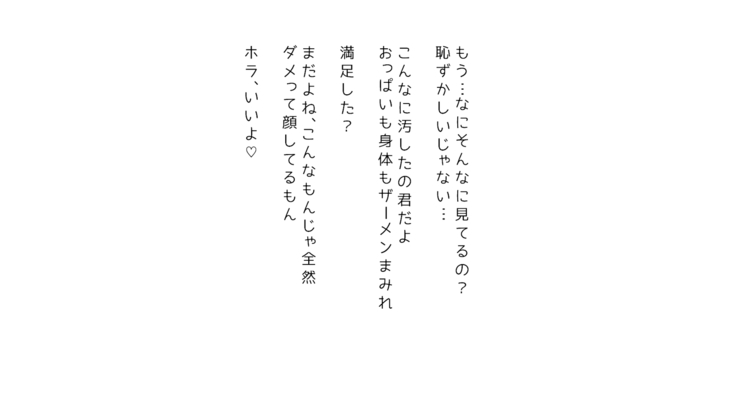 もう…なにそんなに見てるの？
恥ずかしいじゃない…
こんなに汚したの君だよ
おっぱいも身体もザーメンまみれ
満足した？
まだよね、こんなもんじゃ全然
ダメって顔してるもん
ホラ、いいよ♡